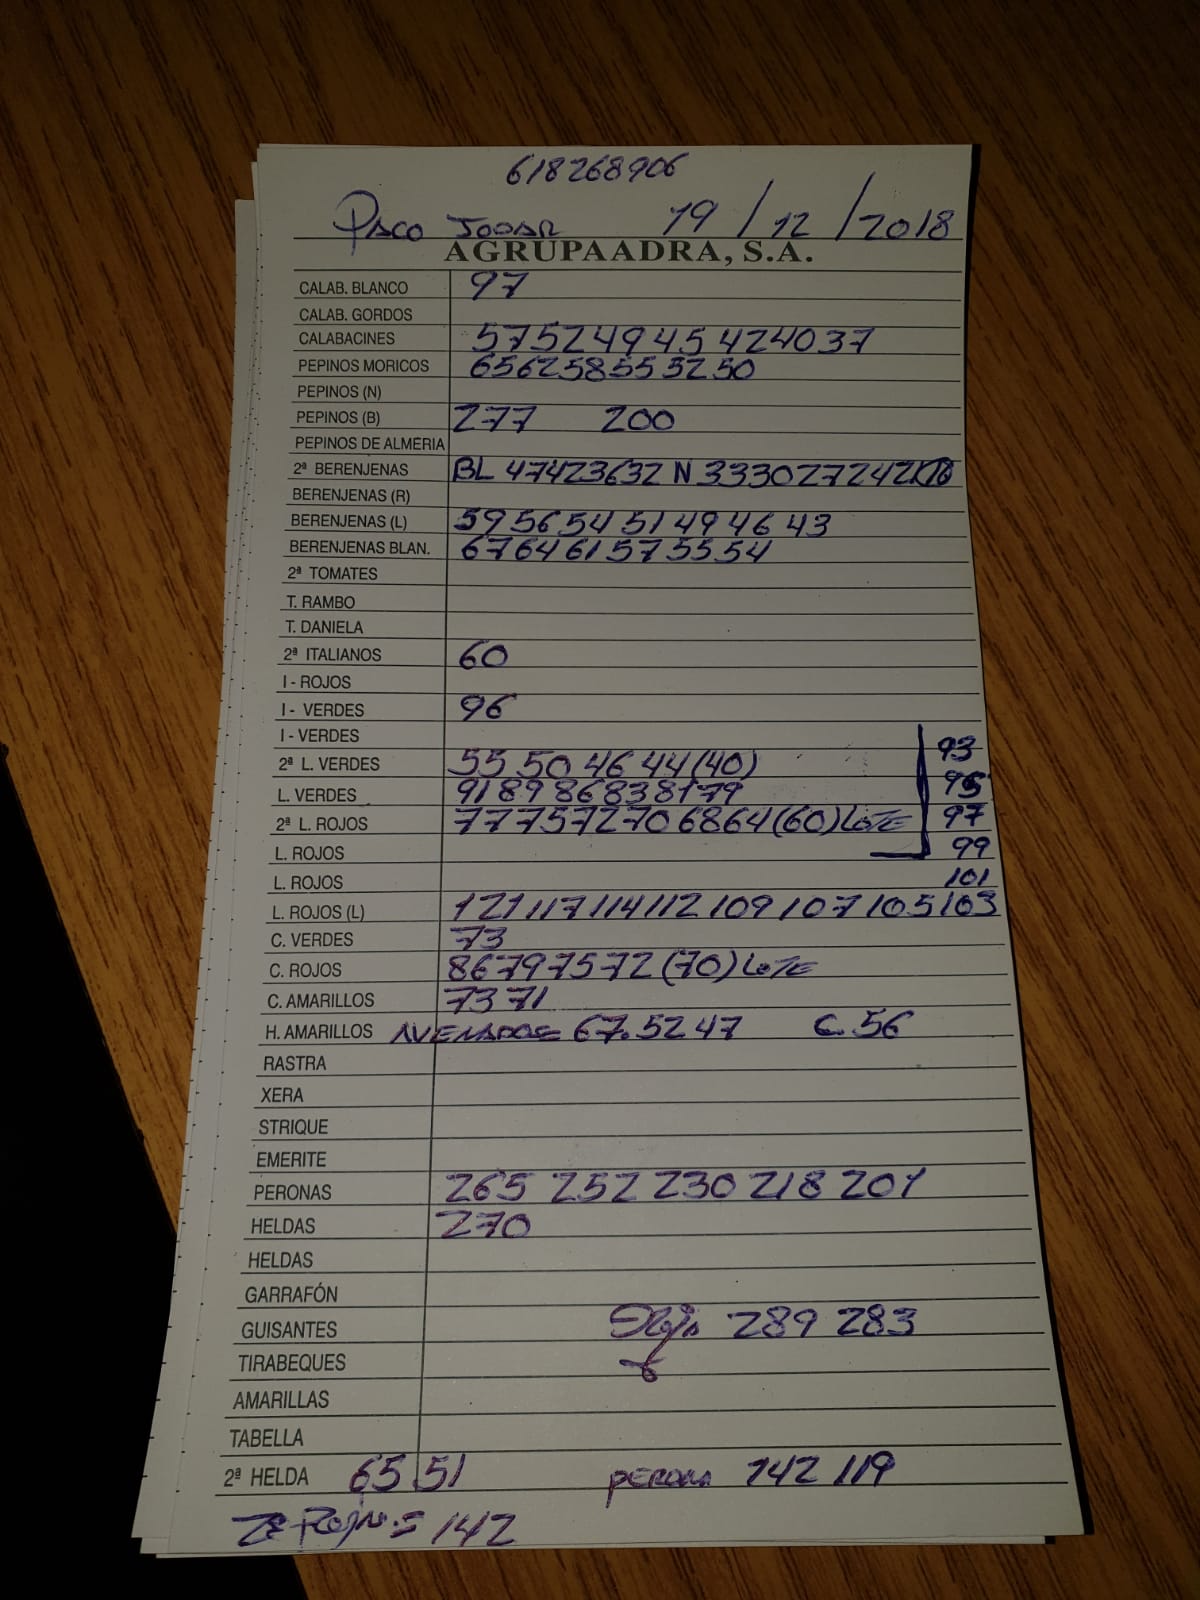 618268906
PACO JODAR 19/12/2018
AGRUPAADRA, S.A.
CALAB. BLANCO 97
CALAB. GORDOS
CALABACINES 57 52 49 45 42 40 37
PEPINOS MORICOS 65 62 58 55 53 52 50
PEPINOS (N)
PEPINOS (B) 277 200
PEPINOS DE ALMERIA
2ª BERENJENAS BL 47 42 36 32 N 33 30 27 24 21
BERENJENAS (R)
BERENJENAS (L) 59 56 54 51 49 46 43
BERENJENAS BLAN. 67 64 61 57 55 54
2ª TOMATES
T. RAMBO
T. DANIELA
2ª ITALIANOS 60
I - ROJOS
I - VERDES 96
I - VERDES 93
2ª L. VERDES 55 50 46 44 (40) 95
L. VERDES 91 89 86 83 81 79
2ª L. ROJOS 77 75 72 70 68 64 (60) LOTE 97
L. ROJOS 99
L. ROJOS 101
L. ROJOS (L) 121 117 114 112 109 107 105 103
C. VERDES 73
C. ROJOS 86 79 75 72 (70) LOTE
C. AMARILLOS 73 71
H. AMARILLOS 67. 52 47 C. 56
RASTRA
XERA
STRIQUE
EMERITE
PERONAS 265 252 230 218 201
HELDAS 270
HELDAS
GARRAFÓN
GUISANTES 289 283
TIRABEQUES
AMARILLAS
TABELLA
2ª HELDA 65 51 PERONA 142 119
ROJA = 142